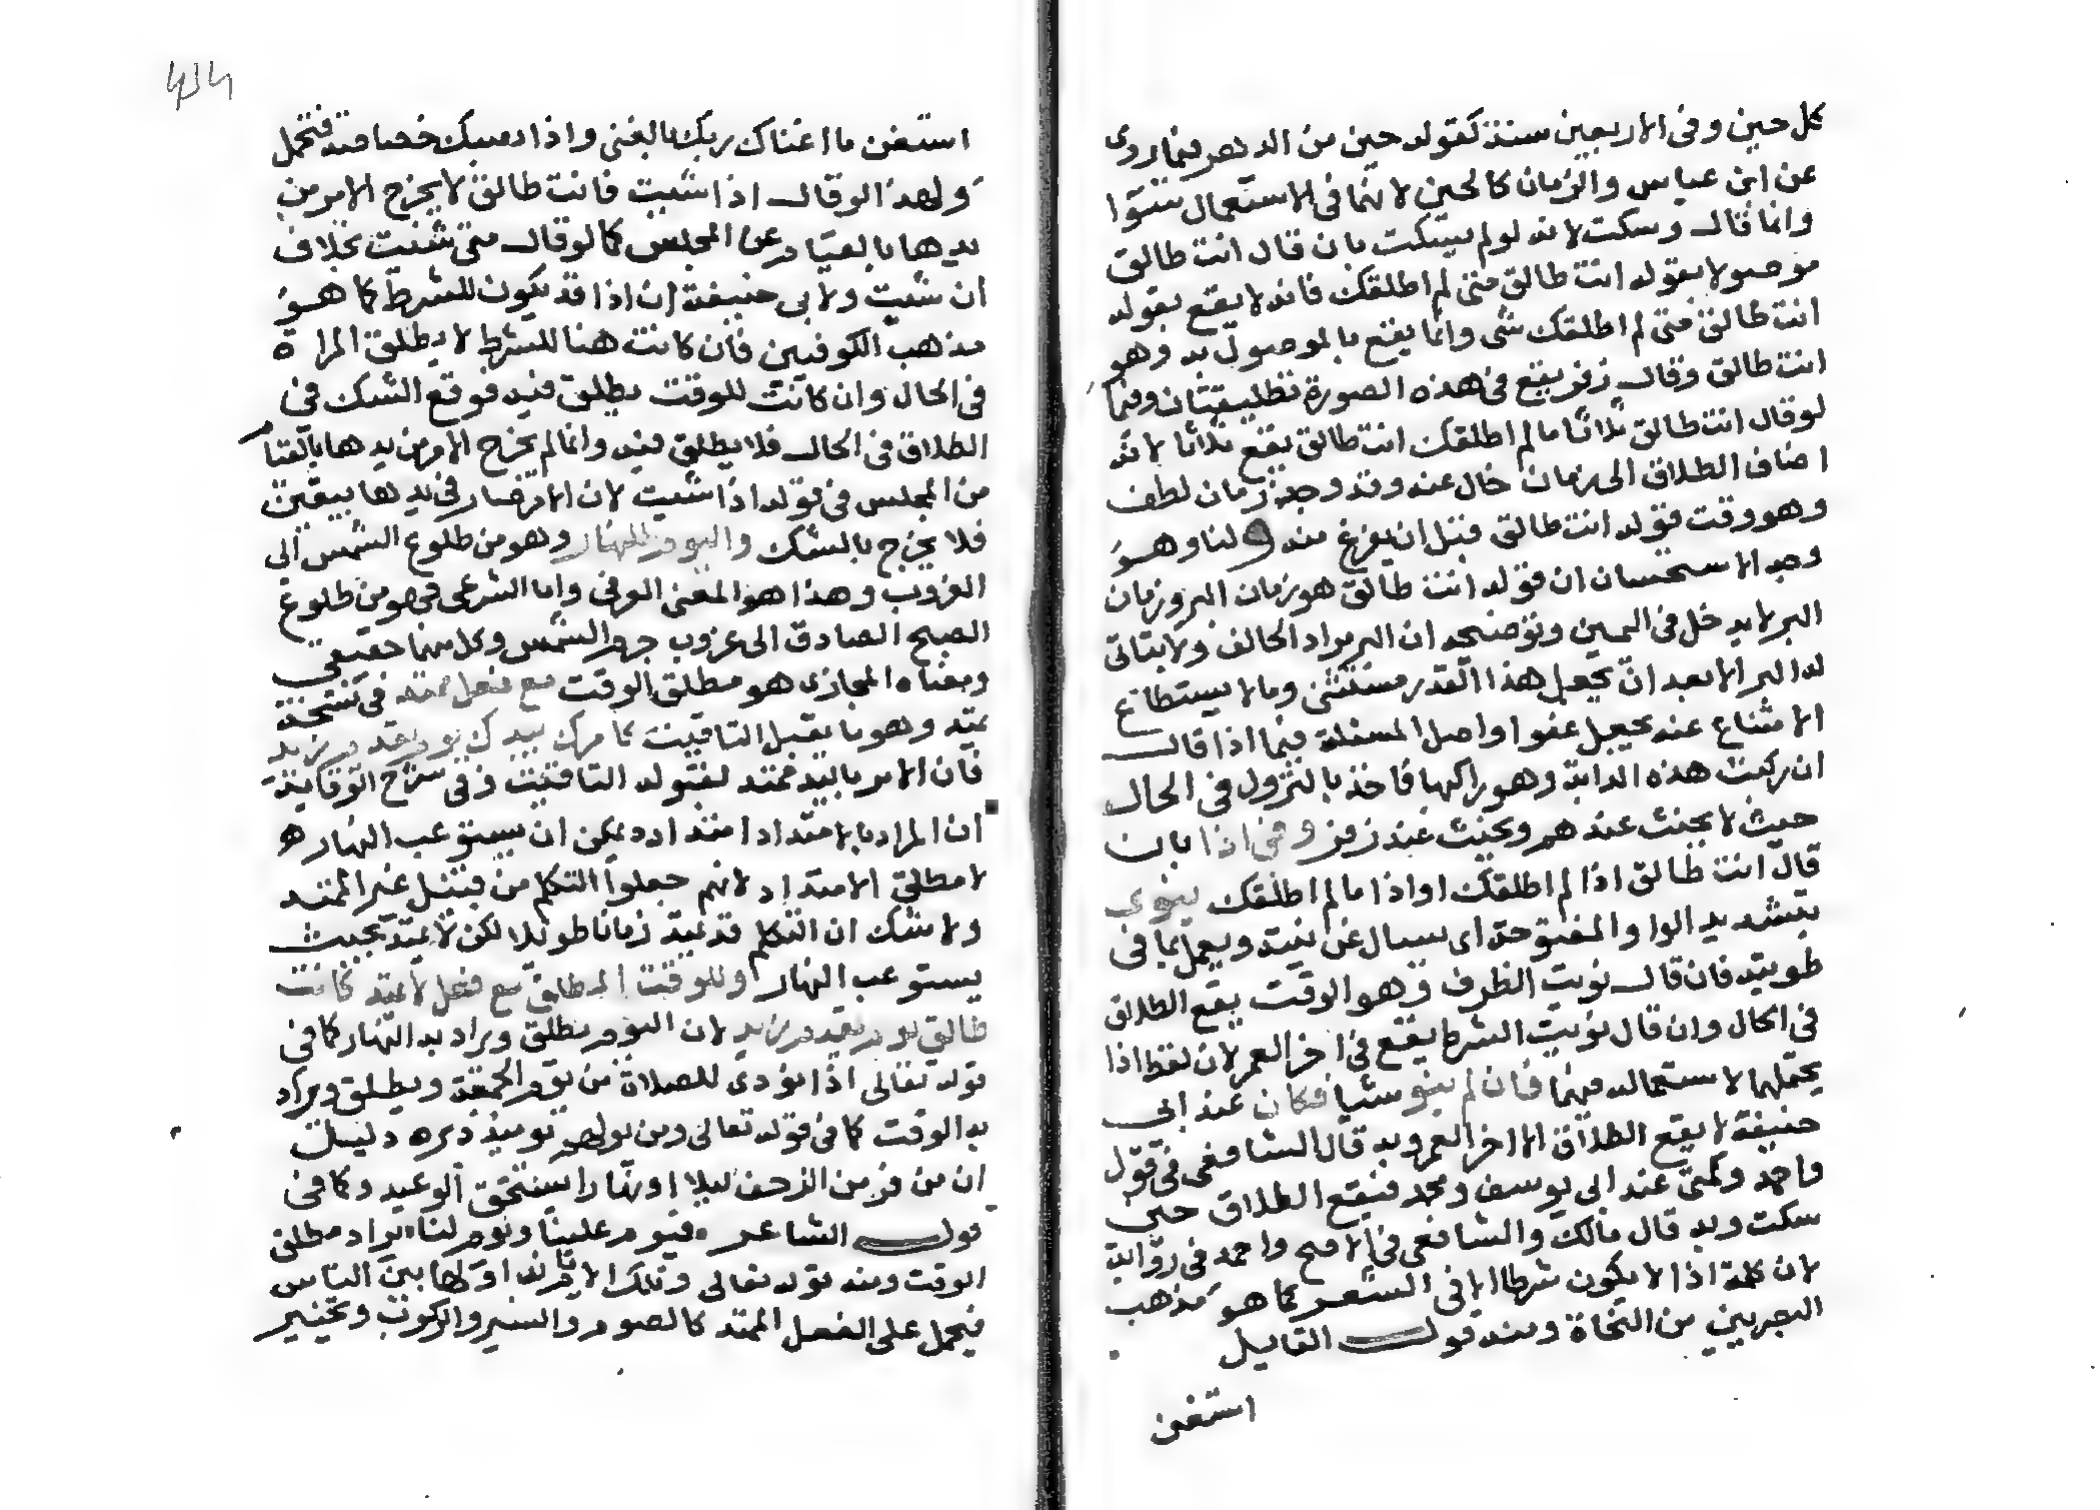 كل حين وفى الاربعين سنة كقوله حين من الدهر فيما روى
عن ابن عباس والزمان كالحين لانهما فى الاستعمال سوا
وانما قال وسكت لانه لو لم يسكت بان قال انت طالق
موصولا بقوله انت طالق متى لم اطلقك فانه لا يقع بقوله
انت طالق متى لم اطلقك شى وانما يقع بالموصول به وهو
انت طالق وقال زفر يقع فى هذه الصورة تطليقتان وفيما
لو قال انت طالق ثلاثا ما لم اطلقك انت طالق يقع ثلاثا لانه
اضاف الطلاق الى زمان خال عنه وقد وجد زمان لطف
وهو وقت قوله انت طالق قبل ان يفرغ منه ولنا وهو
وجه الاستحسان ان قوله انت طالق هو زمان البر وزمان
البر لا يدخل فى اليمين وتوضيحه ان البر مراد الحالف ولا يتاتى
له البر الا بعد ان يجعل هذا القدر مستثنى وما لا يستطاع
الامتناع عنه يجعل عفوا واصل المسئلة فيما اذا قال
ان ركبت هذه الدابة وهو راكبها فاخذ بالنزول فى الحال
حيث لا يحنث عندهم ويحنث عند زفر وفى اذا بان
قال انت طالق اذا لم اطلقك او اذا ما لم اطلقك ينوى
بتشديد الواو المفتوحة اى يسال عن نيته ويعمل بما فى
طويته فان قال نويت الظرف وهو الوقت يقع الطلاق
فى الحال وان قال نويت الشرط يقع فى اخر العمر لان لفظ اذا
يحتملهما لاستعماله فيهما فان لم ينو شيا فكان عند ابى
حنيفة لا يقع الطلاق الا اخر العمر وبه قال الشافعى فى قول
واحمد وكمتى عند ابى يوسف ومحمد فيقع الطلاق حين
سكت وبه قال مالك والشافعى فى الاصح واحمد فى رواية
لان كلمة اذا لا يكون شرطا الا فى الشعر كما هو مذهب
البصريين من النحاة ومنه قول القايل
استغن
434
استغن ما اغناك ربك بالغنى واذا تصبك خصاصة فتحمل
ولهذا لو قال اذا شئت فانت طالق لا يخرج الامر من
يدها بالقيام عن المجلس كما لو قال متى شئت بخلاف
ان شئت ولابى حنيفة ان اذا قد يكون للشرط كما هو
مذهب الكوفيين فان كانت هنا للشرط لا يطلق المراة
فى الحال وان كانت للوقت يطلق فيه فوقع الشك فى
الطلاق فى الحال فلا يطلق فيه وانما لم يخرج الامر من يدها بالقيام
من المجلس فى قوله اذا شئت لان الامر صار فى يدها بيقين
فلا يخرج بالشك واليوم للنهار وهو من طلوع الشمس الى
الغروب وهذا هو المعنى العرفى واما الشرعى فهو من طلوع
الصبح الصادق الى غروب جرم الشمس وكل منهما حقيقى
ومعناه المجازى هو مطلق الوقت مع فعل ممتد فى نسخة
يمتد وهو ما يقبل التاقيت كامرك بيدك يوم يقدم زيد
فان الامر باليد ممتد لقبوله التاقيت وفى شرح الوقاية
ان المراد بالامتداد امتداد يمكن ان يستوعب النهار
لا مطلق الامتداد لانهم جعلوا التكلم من قبيل غير الممتد
ولا شك ان التكلم قد يمتد زمانا طويلا لكن لا يمتد بحيث
يستوعب النهار وللوقت المطلق مع فعل لا يمتد كانت
طالق يوم يقدم زيد لان اليوم يطلق ويراد به النهار كما فى
قوله تعالى اذا نودى للصلاة من يوم الجمعة ويطلق ويراد
به الوقت كما فى قوله تعالى ومن يولهم يومئذ دبره دليل
ان من فر من الزحف ليلا او نهارا استحق الوعيد وكما فى
قول الشاعر فيوم علينا ويوم لنا يراد مطلق
الوقت ومنه قوله تعالى وتلك الايام نداولها بين الناس
فيحمل على الفعل الممتد كالصوم والسير والركوب وتخيير